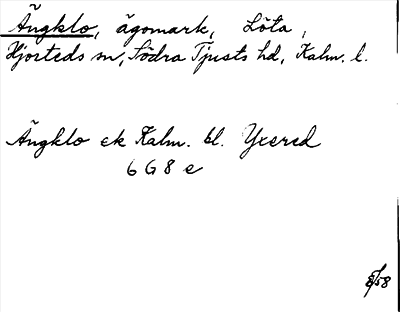 Ängklo, ägomark, Löta,
Hjorteds sn, Södra Tjusts hd, Kalm. l.
Ängklo ek Kalm. bl. Yxered
6 G 8 e